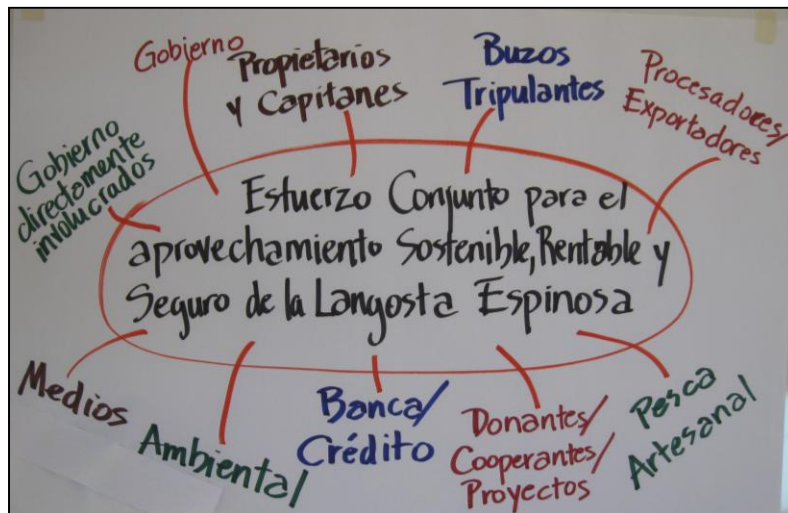 Gobierno
Propietarios
y Capitanes
Buzos
Tripulantes
Procesadores/
Exportadores
Gobierno
directamente
involucrados
Esfuerzo Conjunto para el
aprovechamiento Sostenible, Rentable y
Seguro de la Langosta Espinosa
Medios
Ambiental
Banca/
Crédito
Donantes/
Cooperantes/
Proyectos
Pesca
Artesanal